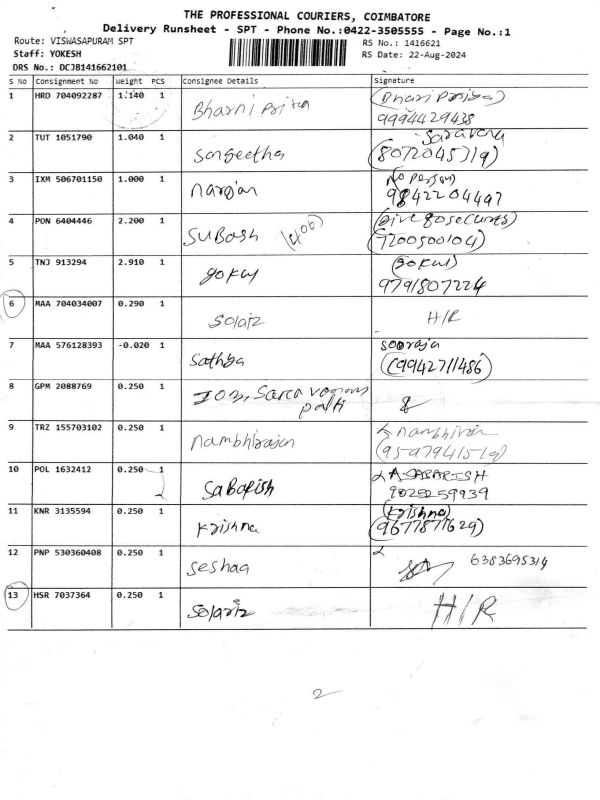 THE PROFESSIONAL COURIERS, COIMBATORE
Delivery Runsheet - SPT - Phone No.:0422-3505555 - Page No.:1
Route: VISWASAPURAM SPT RS No.: 1416621
Staff: YOKESH RS Date: 22-Aug-2024
DRS No.: DCJB141662101
S No Consignment No Weight PCS Consignee Details Signature
1 HRD 704092287 1.140 1 Bharni Priya
9994429438
2 TUT 1051790 1.040 1 Sangeetha Saravana
(8072045319)
3 IXM 506701150 1.000 1 No Person
9842204497
4 PON 6404446 2.200 1 Subash (400)
(7200500104)
5 TNJ 913294 2.910 1 gokul (gokul)
9791807224
6 MAA 704034007 0.290 1 Solariz H/R
7 MAA 576128393 -0.020 1 Sathya Sooraja
(9942711486)
8 GPM 2088769 0.250 1
9 TRZ 155703102 0.250 1 nambhirajan nambhirajan
10 POL 1632412 0.250 1 Sabarish A-SABARISH
2
11 KNR 3135594 0.250 1 Krishna (Krishna)
(9677877629)
12 PNP 530360408 0.250 1 Seshaa 6383695314
13 HSR 7037364 0.250 1 Solariz H/R
2